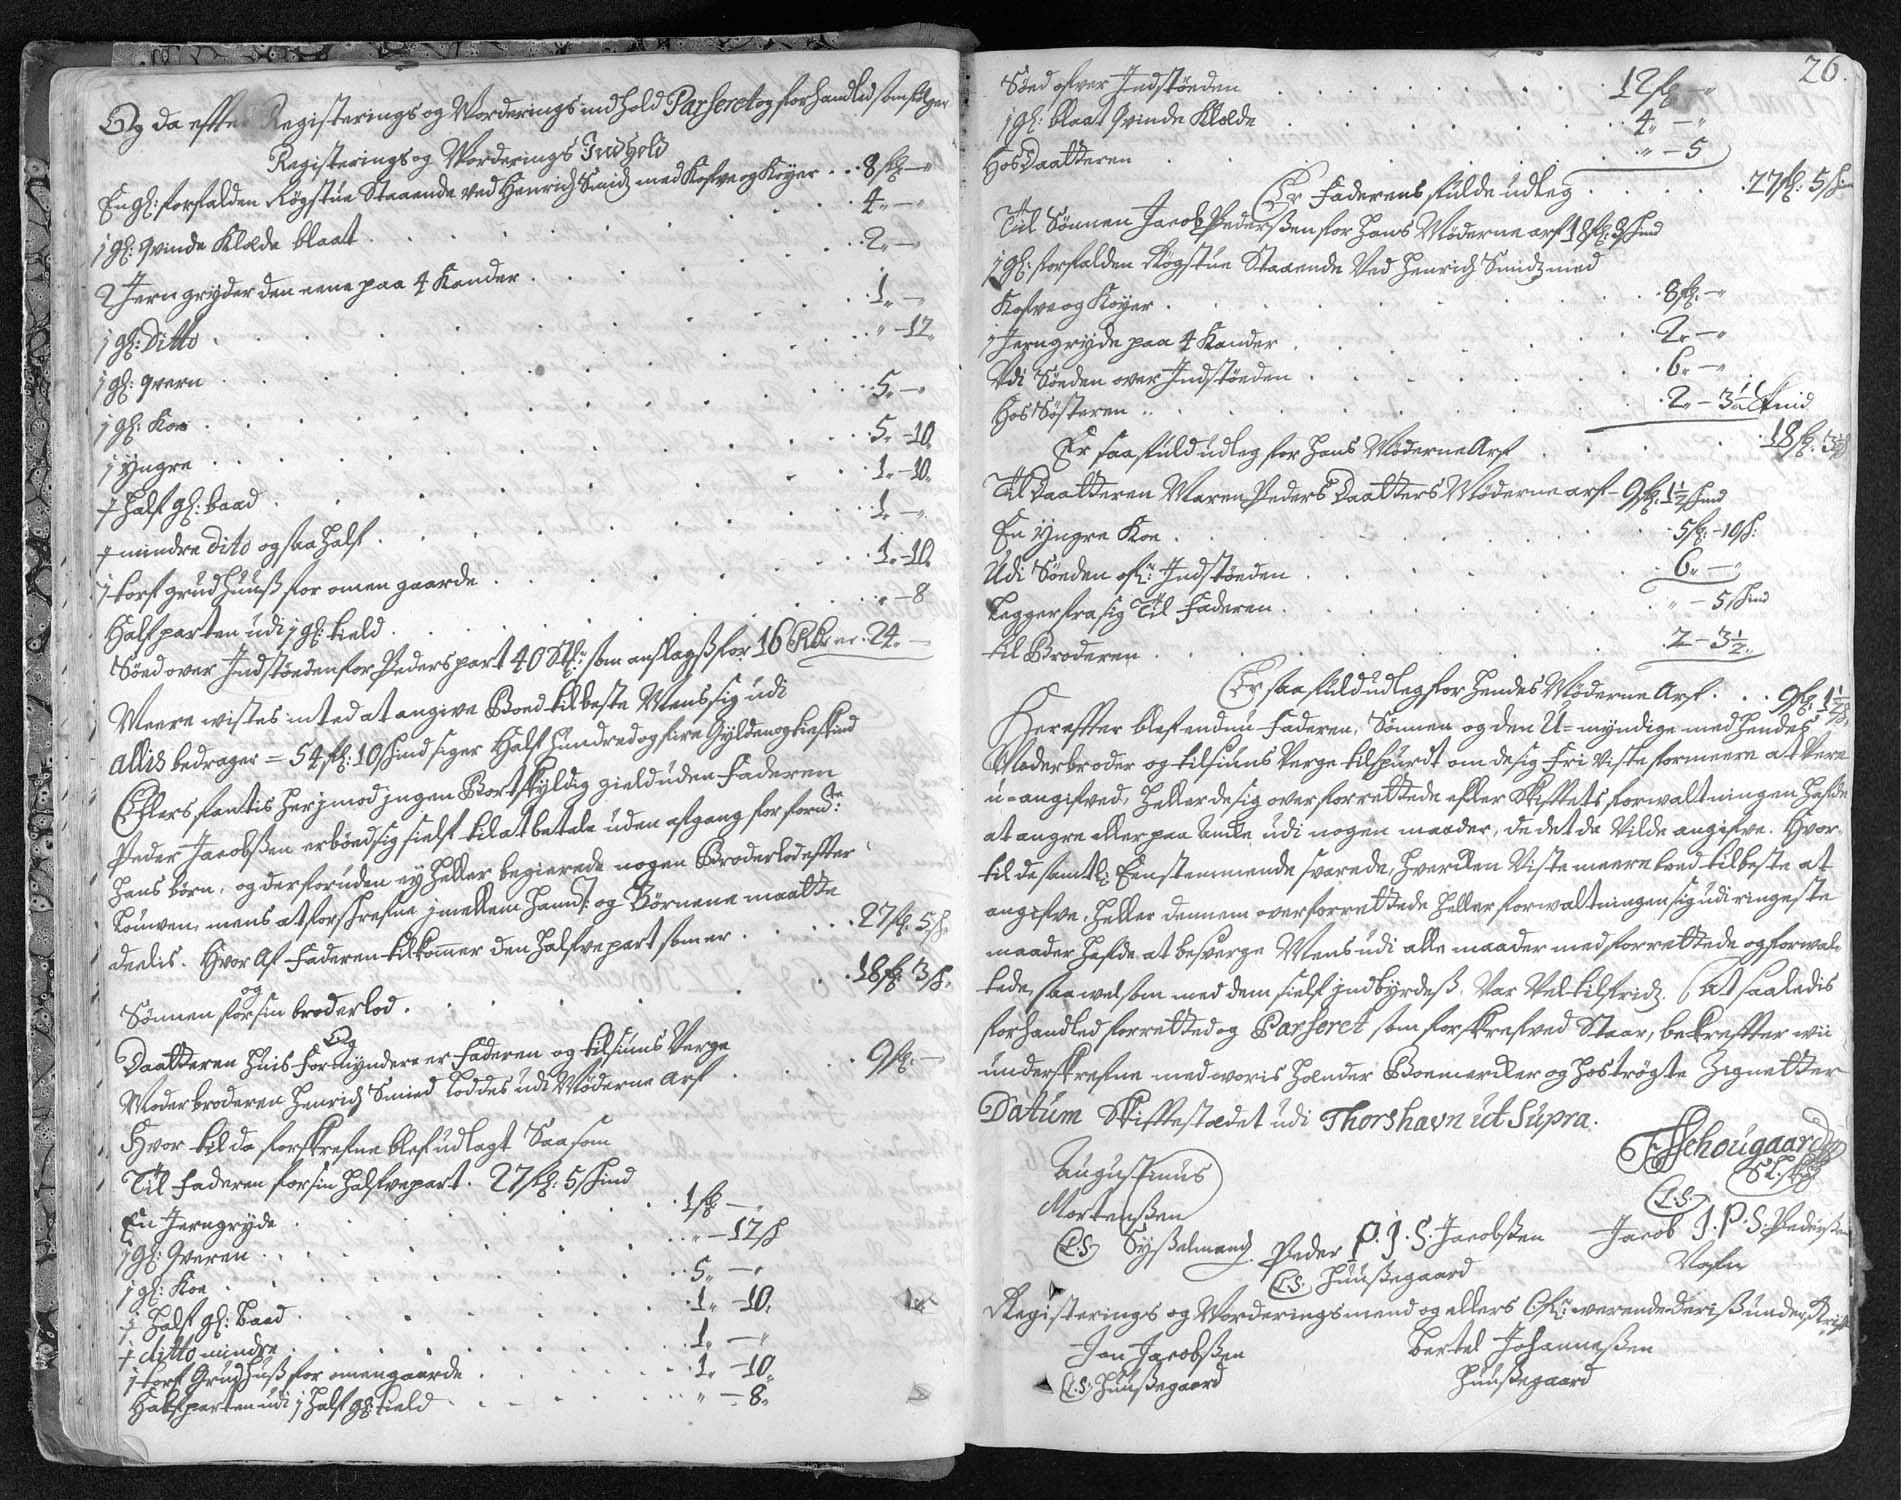 Og da effter Registerings og Vorderings indhold Parheret og forhandlid som følger
Registerings og Vorderings Indhold
En gl: forfalden Røgstue Staaende ved Henrich Smidz med Kofve og Køyer . . 8 fl: —"
1 gl: qvinde Klæde blaat . . . 4" —"
2 Jern gryder den eene paa 4 Kander . . . 2" —"
1 gl: Ditto . . . 1" —
1 gl: qvern . . . " — 12
1 gl: Koe . . . 5" —"
1 yngre . . . 5" — 10"
1 half gl: baad . . . 1" — 10"
1 mindre dito ogsaa half . . . 1" — "
1 torf grud huuß for omen gaarde . . . 1" — 10"
Half parten udi 1 gl: kield . . . " — 8
Søed over Indstøeden for Peders part 40 St: som anslagß for 16 24" —
Meere wistes inted at angive Boed til beste Mens sig udi
alliß bedrager = 54 fl: 10 skind siger Half hundred og fire Gylden og tie skind
Ellers fantis her imod ingen Bortskyldig gield uden Faderen
Peder Jacobßen erbøed sig sielf til at betale uden afgang for fornt:
hans børn, og der foruden ey heller begierede nogen Broderlod effter
Louven, mens at forskrefne imellem ham og Børnene maatte
deelis. Hvor af Faderen tilkommer den halfve part som er . . . 27 fl: 5 s:
Sønnen for sin broderlod . . . 18 fl: 3 s:
og
Daatteren huis Formyndere er Faderen og tilsiuns Verge
Og
Moderbroderen Henrich Smied loddes udi Møderne arf . . . 9 fl: —"
Hvor til da forskrefne blef udlagt Saasom
Til Faderen for sin halfve part. 27 fl: 5 skind
En Jerngryde . . . 1 fl: — "
1 gl: Qveren . . . " — 12 s
1 gl: Koe . . . 5" — "
1 half gl: baad . . . 1" — 10"
1 ditto mindre . . . 1" — "
1 torf Grud huß for omen gaarde . . . 1" — 10"
Halfparten udi 1 half gl: kield . . . " — 8"
26.
Søed ofver Indstøeden . . . 12 fl: — "
1 gl: blaat Qvinde Klæde . . . 4" — "
Hos Daatteren . . . " — 5
Er Faderens fulde udleg . . . 27 fl: 5 skind
Til Sønnen Jacob Pederßen for hans Møderne arf 18 fl: 3 skind
1 gl: forfalden Røgstue Staaende Ved Henrich Smidz med
Kofve og Køyer . . . 8 fl: — "
1 Jerngryde paa 4 Kander . . . 2" — "
Udi Søeden over Indstøeden . . . 6" — "
Hos Søsteren . . . 2" — 3½ skind
Er saa fuld udleg for hans Møderne Arf . . . 18 fl: 3½ s
Til Daatteren Maren Peders Daatters Møderne arf — 9 fl: 1½ skind
En yngre Koe . . . 5 fl: — 10 s:
Udi Søeden ofr: Indstøeden . . . 6" — "
Legger fra sig Til Faderen . . . " — 5 skind
til Broderen . . . 2 — 3½"
Er saa fuld udleg for hendes Møderne Arf . . . 9 fl: 1½ s
Hereffter blef endnu Faderen, Sønnen og den U-myndige med hendes
Moderbroder og tilsiuns Verge tilspurdt om de sig Fri viste for meere at Vere
u-angifved, heller de sig over forrettede eller Skifftets forwaltningen hafde
at angre eller paa Anke udi nogen maader, de det da Vilde angifve. Hvor
til de samtl: Eenstemmende svarede, hverken Viste meere boed til beste at
angifve, heller dennem over forrettede heller forwaltningen sig udi ringeste
maader hafde at besverge Mens udi alle maader med forrettede og forwal-
tede, saa wel som med dem sielf indbyrdeß. Var Vel tilfridz. At saaledis
forhandled forretted og Parheret som forskrefved Staar, bekreffter wii
underskrefne med woris Hænder Boemerker og hostrøgte Zignetter
Datum Skifftestædet udi Thorshavn ut Supra.
Schougaard
Augustinus
Mortenßen
(L.S.) Syßelmand
Peder P. J. S. Jacobßen
(L.S.) Huußegaard
(L.S.)
Jacob J. P. S. Pederßen
Registerings og Vorderings mend og ellers ofr: werende Deris underskrift
Jon Jacobßen
(L.S.) Huußegaard
Bertel Johanneßen
Huußegaard